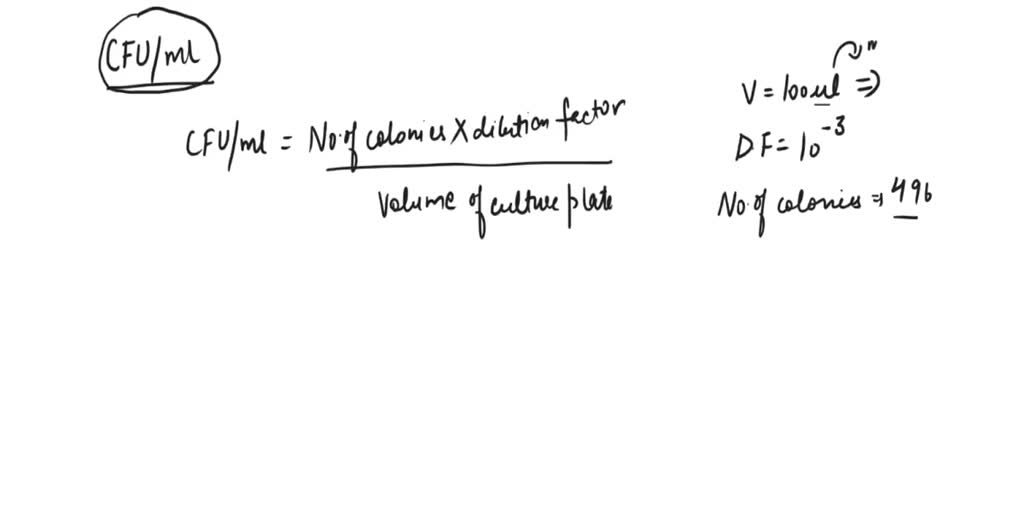 CFU/ml
CFU/ml = No. of colonies X dilution factor
Volume of culture plate
V = 100 ul ⇒
DF = 10⁻³
No. of colonies ⇒ 496